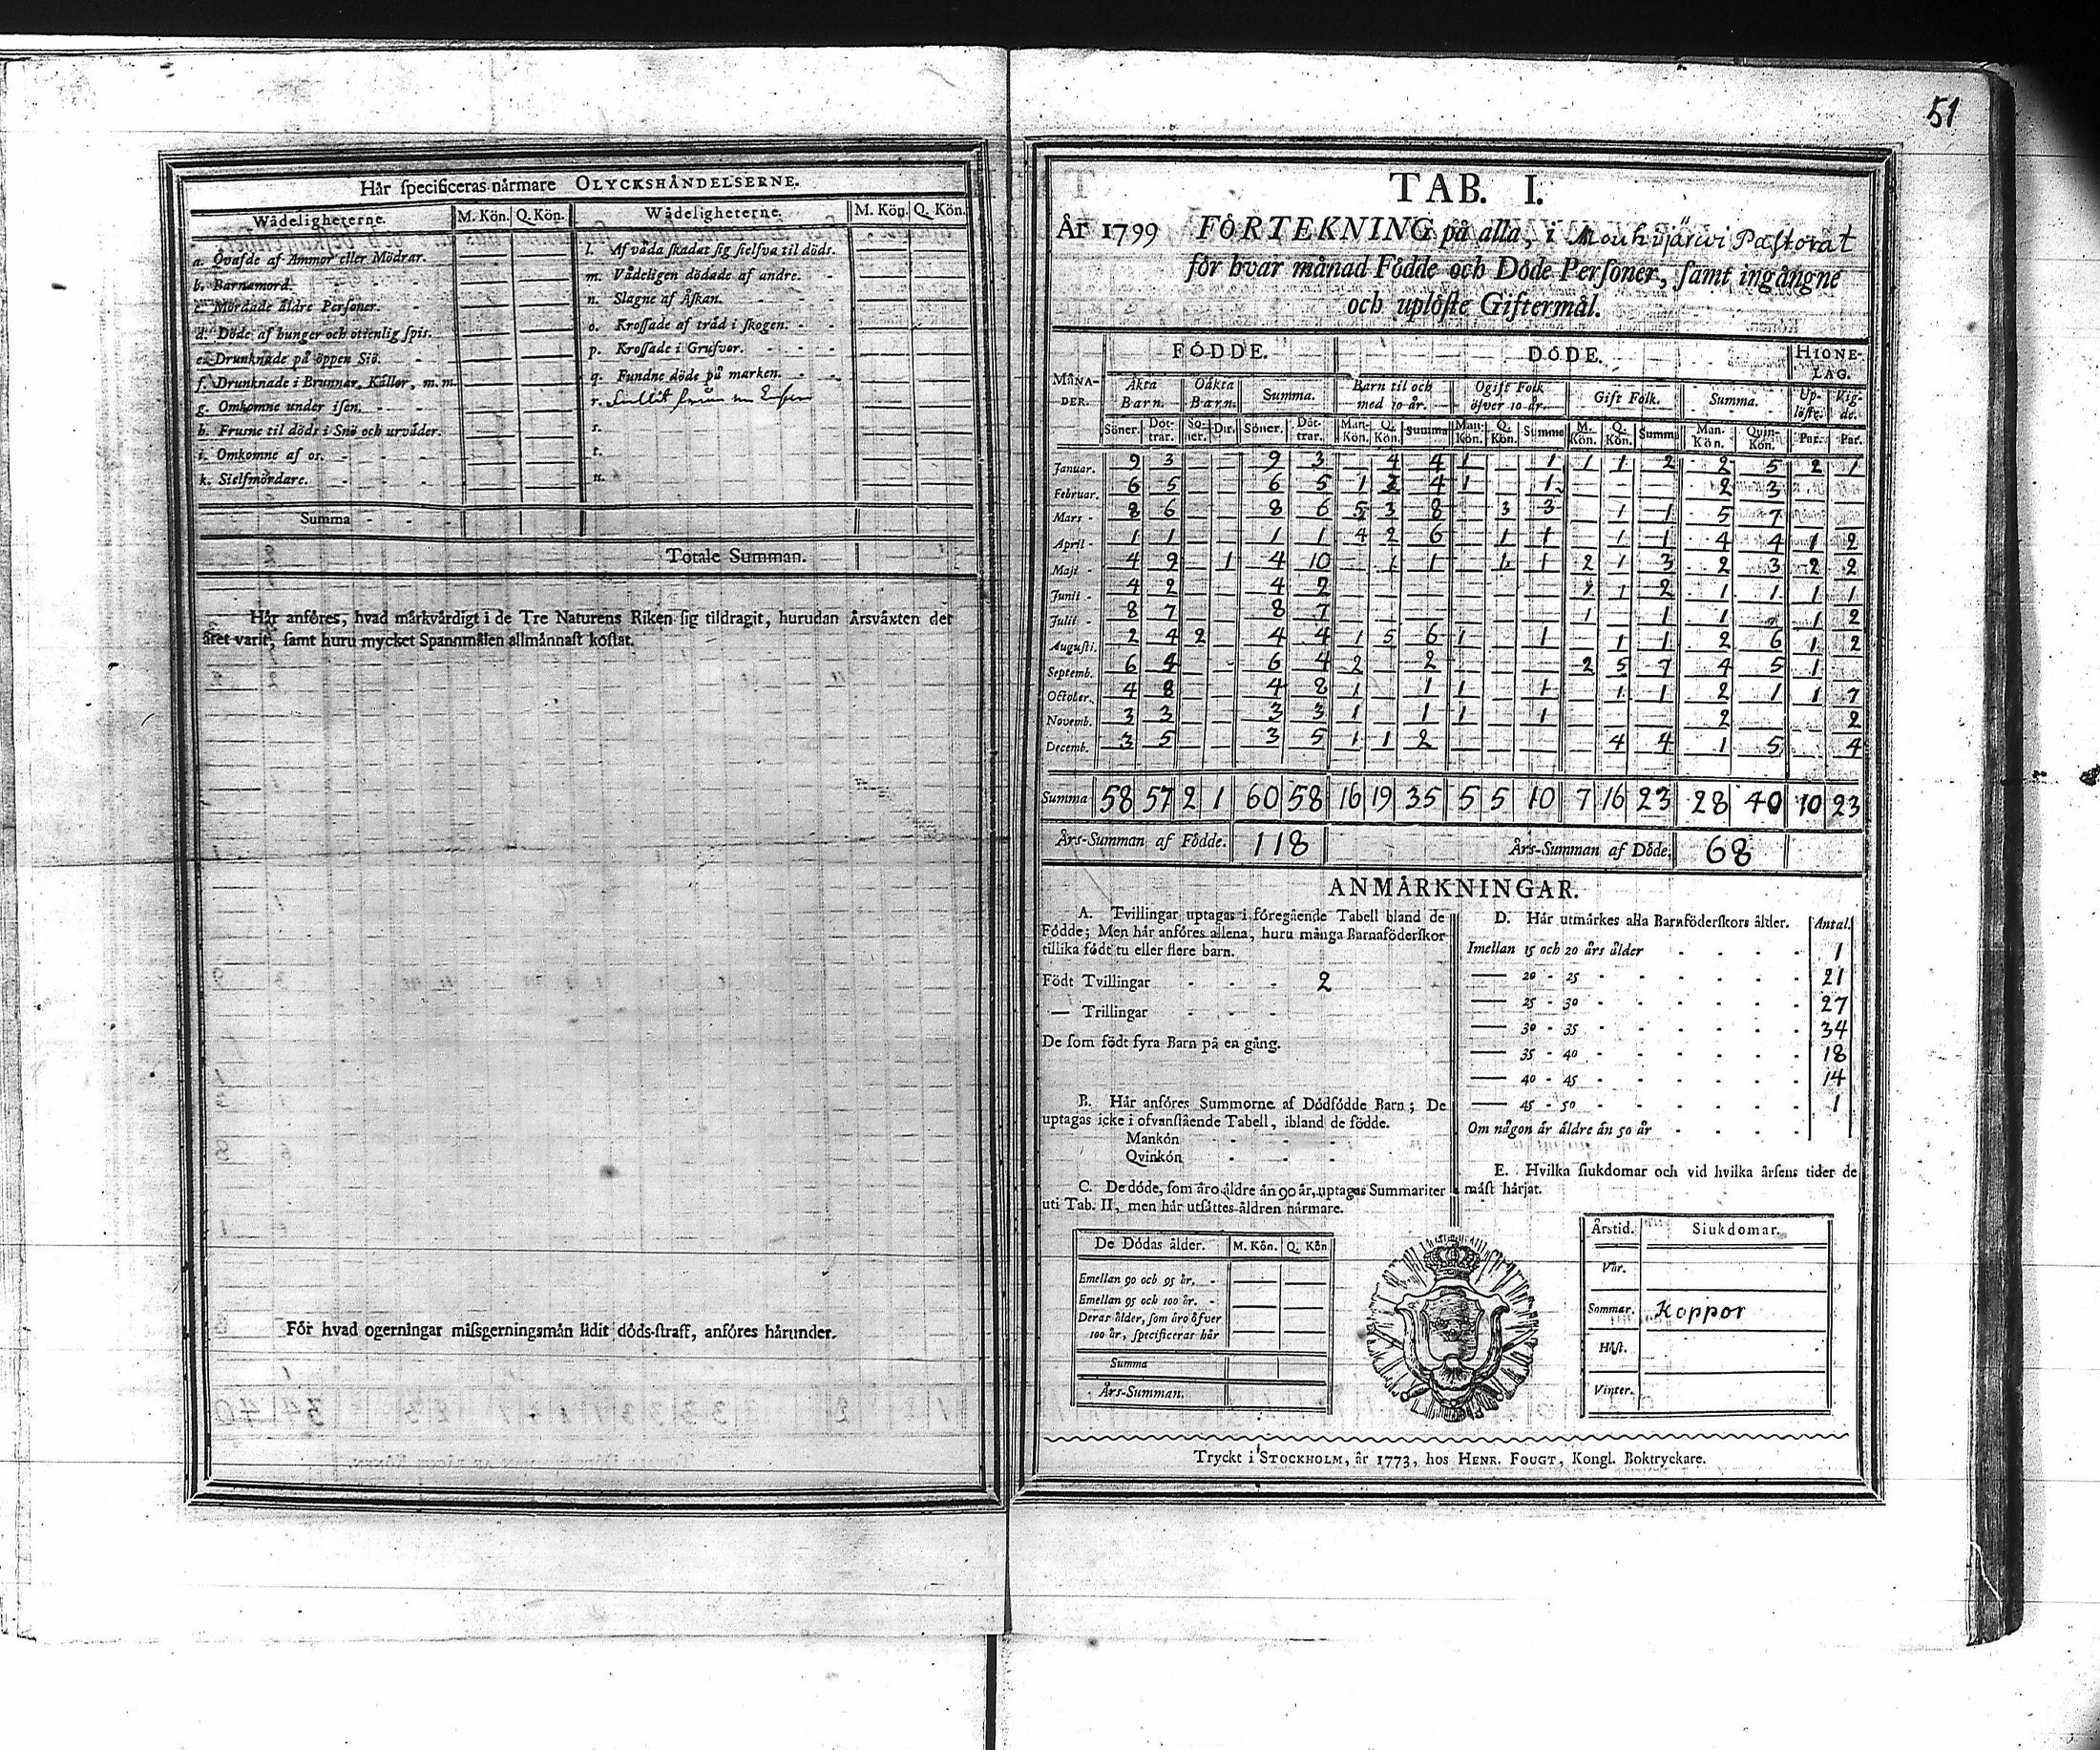 Hår specificeras nårmare OLYCKSHÅNDELSERNE.
Wådeligheterne. M. Kön. Q. Kön. Wådeligheterne. M. Kön. Q. Kön.
a. Qvafde af Ammor eller Mödrar.
b. Barnamord.
c. Mördade äldre Personer.
d. Döde af hunger och otienlig spis.
e. Drunknade på öppen Siö.
f. Drunknade i Brunnar, Kållor, m. m.
g. Omkomne under isen.
h. Frusne til döds i Snö och urvåder.
i. Omkomne af os.
k. Sielfmördare.
l. Af våda skadat sig sielfva til döds.
m. Vådeligen dödade af andre.
n. Slagne af Åskan.
o. Krossade af tråd i skogen.
p. Krossade i Grufvor.
q. Fundne döde på marken.
r.
s.
t.
u.
Summa
Totale Summan.
Hår anföres, hvad mårkvårdigt i de Tre Naturens Riken sig tildragit, hurudan Årsvåxten det
året varit, samt huru mycket Spannmålen allmånnast kostat.
För hvad ogerningar missgerningsmån lidit döds-straff, anföres hårunder.
51
TAB. I.
År 1799 FÖRTEKNING på alla, i Mouhijärwi Pastorat
för hvar månad Födde och Döde Personer, samt ingångne
och uplöste Giftermål.
MÅNA-DER. FÖDDE. DÖDE. HIONE-LAG.
Åkta Barn. Oåkta Barn. Summa. Barn til och med 10 år. Ogift Folk öfver 10 år. Gift Folk. Summa. Up-löste. Vig-de.
Söner. Döt-trar. Sö-ner. Dtr. Söner. Döt-trar. Man-Kön. Q. Kön. Summa Man-Kön. Q. Kön. Summa M. Kön. Q. Kön. Summa Man-Kön. Quin-Kön. Par. Par.
Januar. 9 3 9 3 4 4 1 1 1 1 2 2 5 2 1
Februar. 6 5 6 5 1 2 4 1 1 2 3
Mars 8 6 8 6 5 3 8 3 3 1 1 5 7
April 1 1 1 1 4 2 6 1 1 1 1 4 4 1 2
Maji 4 9 1 4 10 1 1 1 1 2 1 3 2 3 2 2
Junii 4 2 4 2 1 1 2 1 1 1 1
Julii 8 7 8 7 1 1 1 1 2
Augusti. 2 4 2 4 4 1 5 6 1 1 1 1 2 6 1 2
Septemb. 6 4 6 4 2 2 2 5 7 4 5 1
October. 4 8 4 8 1 1 1 1 1 1 2 1 1 7
Novemb. 3 3 3 3 1 1 1 1 2 2
Decemb. 3 5 3 5 1 1 2 4 4 1 5 4
Summa 58 57 2 1 60 58 16 19 35 5 5 10 7 16 23 28 40 10 23
Års-Summan af Födde. 118 Års-Summan af Döde. 68
ANMÅRKNINGAR.
A. Tvillingar uptagas i föregående Tabell bland de
Födde; Men hår anföres allena, huru många Barnaföderskor
tillika födt tu eller flere barn.
Födt Tvillingar 2
— Trillingar
De som födt fyra Barn på en gång.
B. Hår anföres Summorne af Dödfödde Barn; De
uptagas icke i ofvanstående Tabell, ibland de födde.
Mankön
Qvinkön
C. De döde, som åro åldre ån 90 år, uptagas Summariter
uti Tab. II, men hår utsåttes åldren nårmare.
De Dödas ålder. M. Kön. Q. Kön
Emellan 90 och 95 år.
Emellan 95 och 100 år.
Deras ålder, som åro öfver
100 år, specificeras hår
Summa
Års-Summan.
D. Hår utmårkes alla Barnföderskors ålder. Antal.
Imellan 15 och 20 års ålder 1
— 20 - 25 21
— 25 - 30 27
— 30 - 35 34
— 35 - 40 18
— 40 - 45 14
— 45 - 50 1
Om någon år åldre ån 50 år
E. Hvilka siukdomar och vid hvilka årsens tider de
måst hårjat.
Årstid. Siukdomar.
Vår.
Sommar. Koppor
Höst.
Vinter.
Tryckt i STOCKHOLM, år 1773, hos HENR. FOUGT, Kongl. Boktryckare.